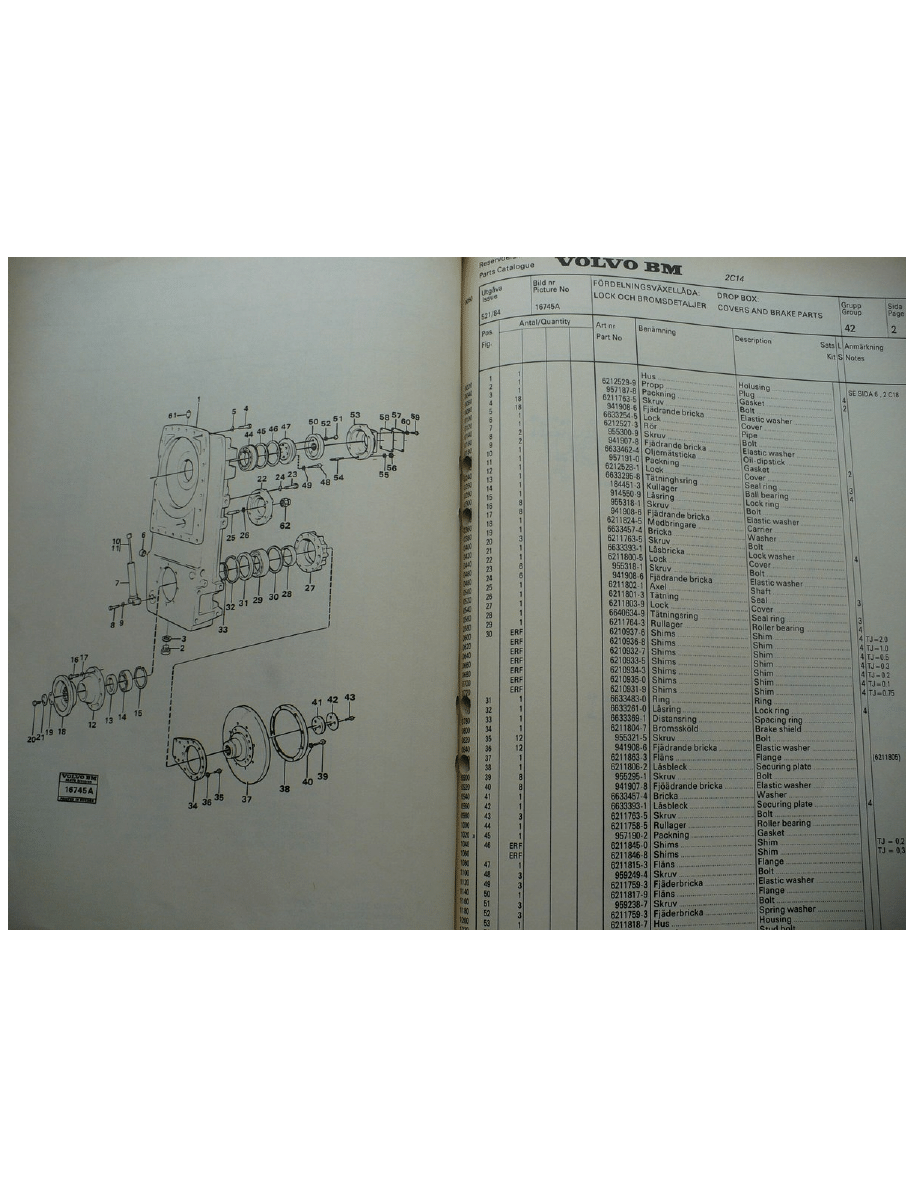 61
5 4
50 51
52
53
58 57 59
60
44 45 46 47
49 48 54
55 56
22 24 23
25 26 62
10
11
6
7
8 9
3
2
33 32 31 29 30 28 27
16 17
20 21 19 18 12 13 14 15
41 42 43
34 36 35 37 38 40 39
VOLVO BM
16745A
Parts Catalogue
VOLVO BM
2C14
Utgåva
Issue
521/84
Bild nr
Picture No
16745A
FÖRDELNINGSVÄXELLÅDA:
LOCK OCH BROMSDETALJER
DROP BOX:
COVERS AND BRAKE PARTS
Grupp
Group
42
Sida
Page
2
Pos.
Fig.
Antal/Quantity
Art nr
Part No
Benämning
Description
Sats
Kit
L
S
Anmärkning
Notes
1 1 Hus Holusing SE SIDA 6, 2 C18
2 1 6212529-9 Propp Plug
3 1 957187-8 Packning Gasket 4
4 18 6211763-5 Skruv Bolt 2
5 18 941908-6 Fjädrande bricka Elastic washer
6 1 6633254-5 Lock Cover
7 1 6212527-3 Rör Pipe
8 2 955300-9 Skruv Bolt
9 2 941907-8 Fjädrande bricka Elastic washer
10 1 6633462-4 Oljemätsticka Oil-dipstick
11 1 957191-0 Packning Gasket 2
12 1 6212528-1 Lock Cover
13 1 6633295-8 Tätninghsring Seal ring 3
14 1 184451-3 Kullager Ball bearing 4
15 1 914550-9 Låsring Lock ring
16 8 955318-1 Skruv Bolt
17 8 941908-6 Fjädrande bricka Elastic washer
18 1 6211824-5 Medbringare Carrier
19 1 6633457-4 Bricka Washer
20 3 6211763-5 Skruv Bolt
21 1 6633393-1 Låsbricka Lock washer 4
22 1 6211800-5 Lock Cover
23 6 955318-1 Skruv Bolt
24 6 941908-6 Fjädrande bricka Elastic washer
25 1 6211802-1 Axel Shaft
26 1 6211801-3 Tätning Seal 3
27 1 6211803-9 Lock Cover
28 1 6640634-9 Tätningsring Seal ring 3
29 1 6211764-3 Rullager Roller bearing 4
30 ERF 6210937-6 Shims Shim 4 TJ=2.0
ERF 6210936-8 Shims Shim 4 TJ=1.0
ERF 6210932-7 Shims Shim 4 TJ=0.5
ERF 6210933-5 Shims Shim 4 TJ=0.3
ERF 6210934-3 Shims Shim 4 TJ=0.2
ERF 6210935-0 Shims Shim 4 TJ=0.1
ERF 6210931-9 Shims Shim 4 TJ=0.75
31 1 6633483-0 Ring Ring
32 1 6633261-0 Låsring Lock ring 4
33 1 6633389-1 Distansring Spacing ring
34 1 6211804-7 Bromssköld Brake shield
35 12 955321-5 Skruv Bolt
36 12 941908-6 Fjädrande bricka Elastic washer
37 1 6211863-3 Fläns Flange (6211805)
38 1 6211806-2 Låsbleck Securing plate
39 8 955295-1 Skruv Bolt
40 8 941907-8 Fjöädrande bricka Elastic washer
41 1 6633457-4 Bricka Washer
42 1 6633393-1 Låsbleck Securing plate 4
43 3 6211763-5 Skruv Bolt
44 1 6211758-5 Rullager Roller bearing
45 1 957190-2 Packning Gasket
46 ERF 6211845-0 Shims Shim TJ = 0,2
ERF 6211846-8 Shims Shim TJ = 0,3
47 1 6211815-3 Fläns Flange
48 3 959249-4 Skruv Bolt
49 3 6211759-3 Fjäderbricka Elastic washer
50 1 6211817-9 Fläns Flange
51 3 959238-7 Skruv Bolt
52 3 6211759-3 Fjäderbricka Spring washer
53 1 6211818-7 Hus Housing
Stud bolt